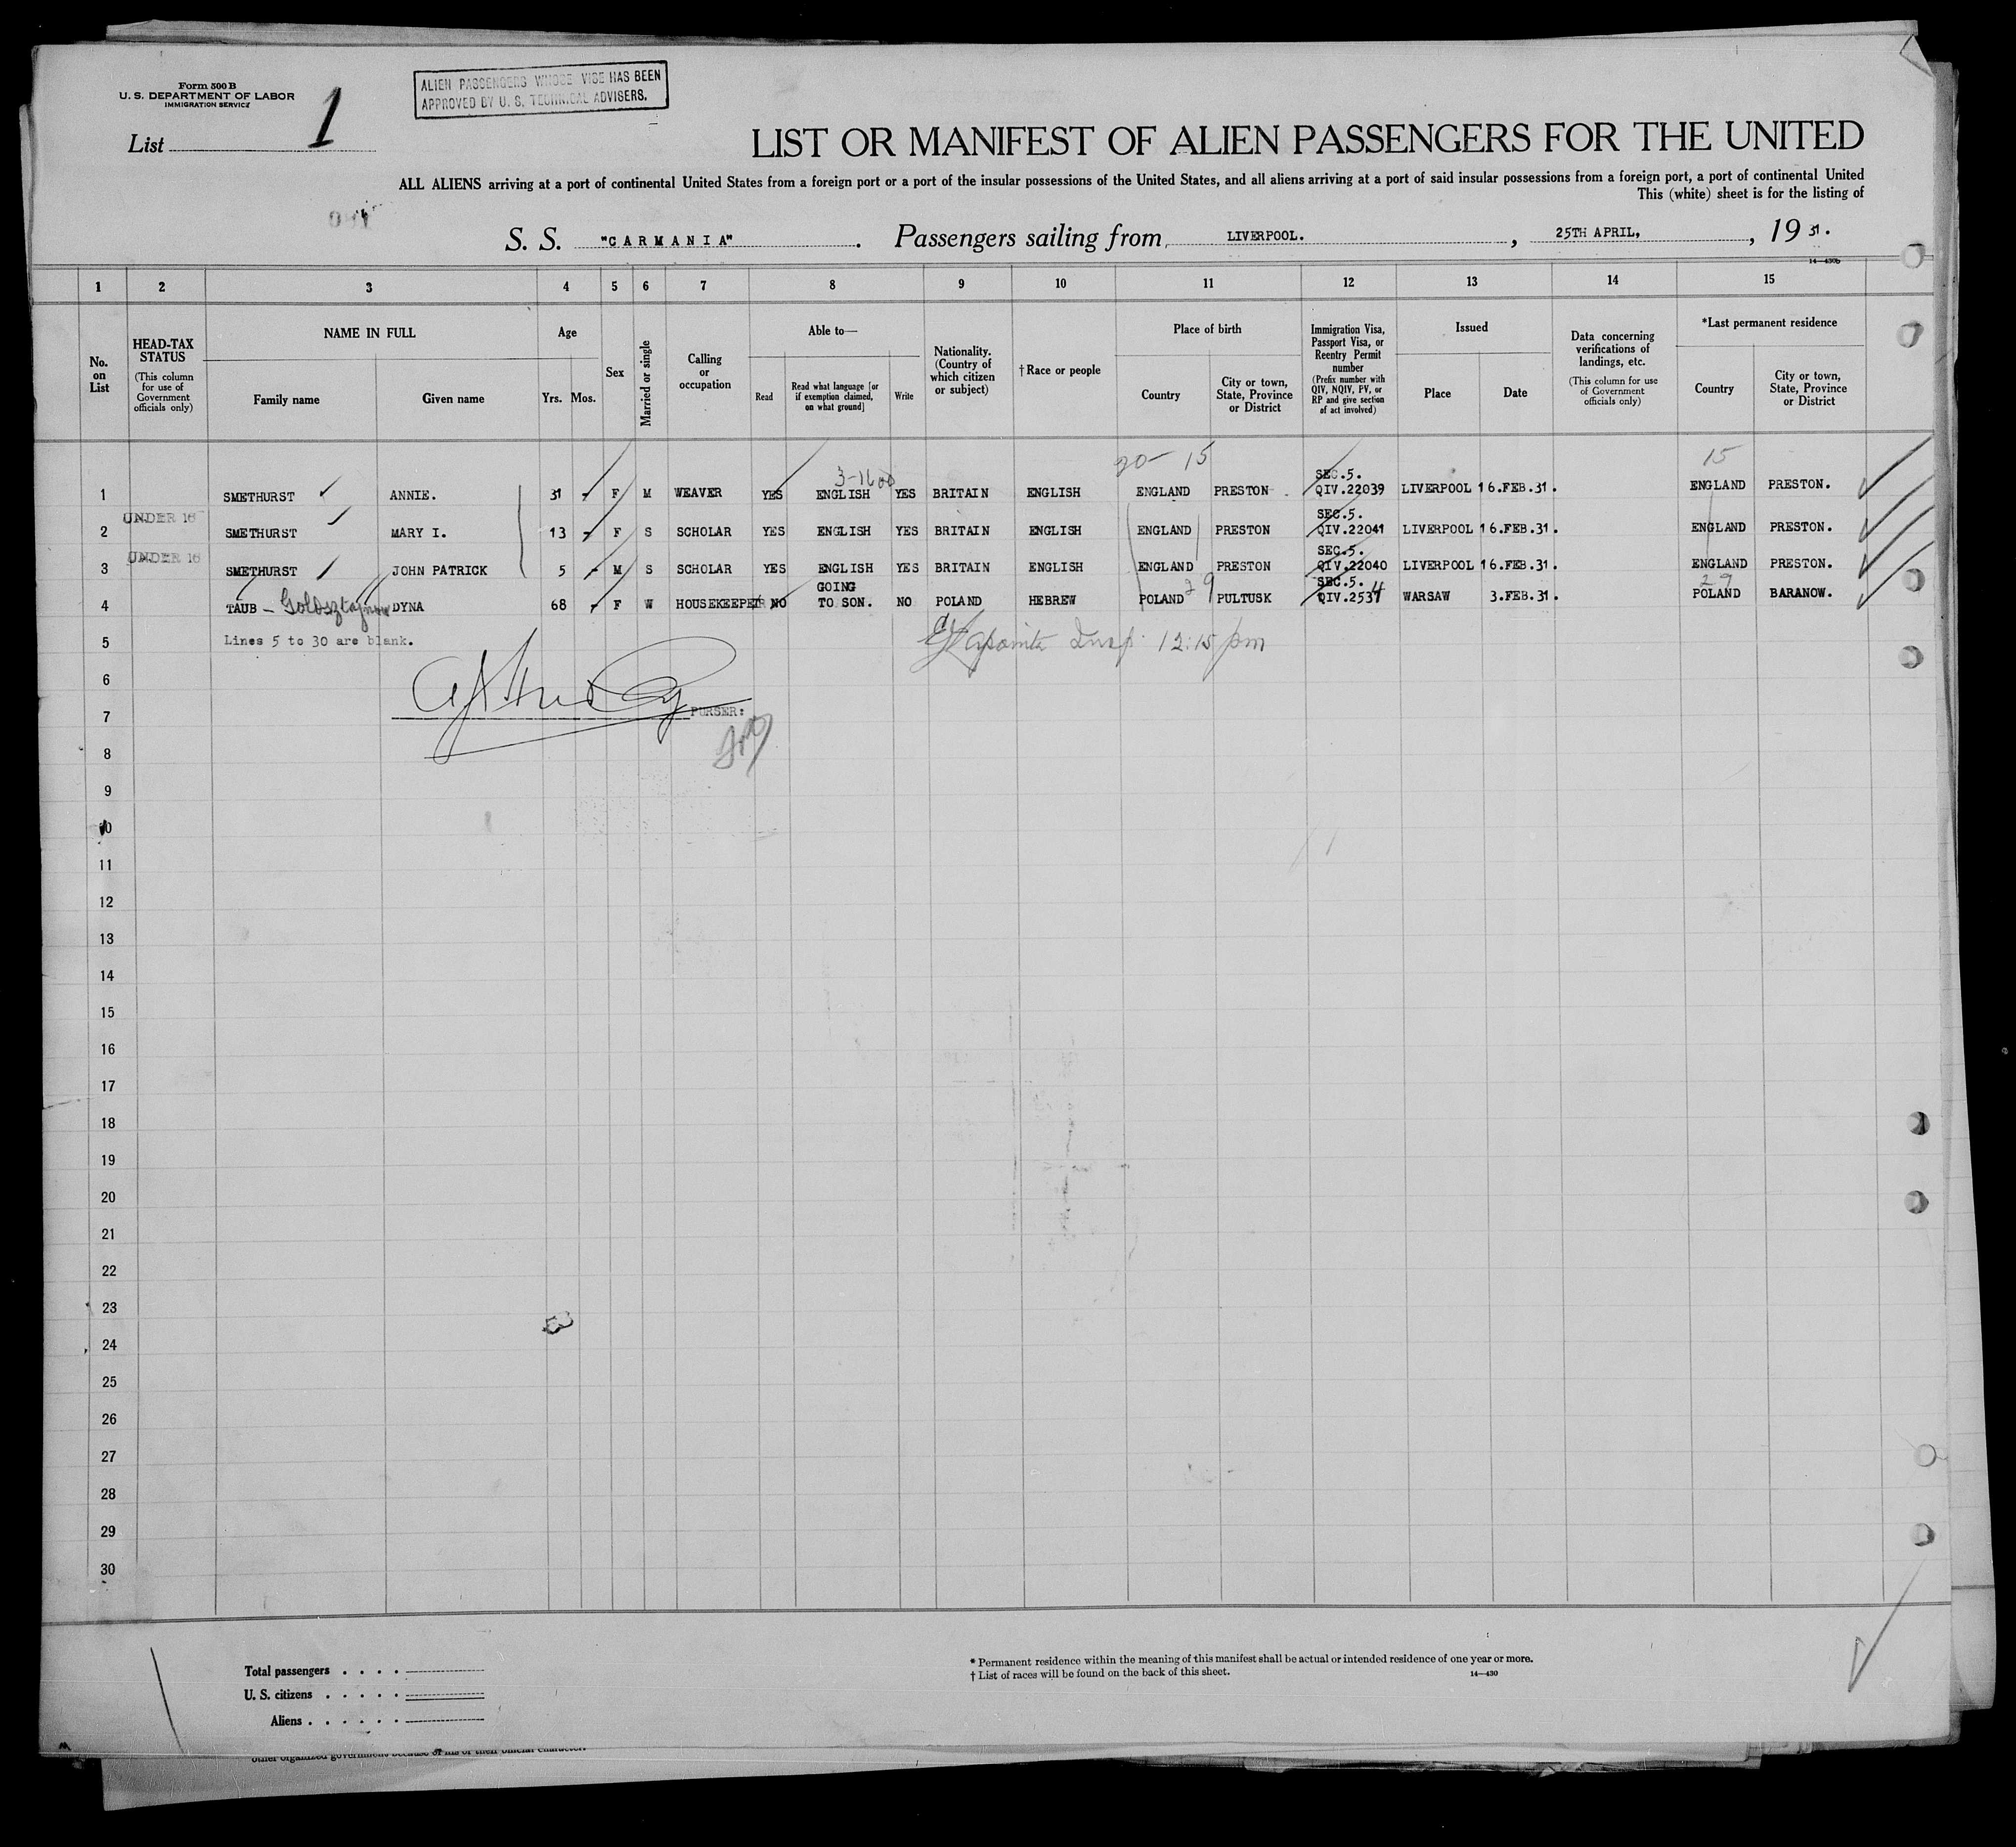 Form 500 B
U. S. DEPARTMENT OF LABOR
IMMIGRATION SERVICE
List 1
ALIEN PASSENGERS WHOSE VISE HAS BEEN
APPROVED BY U. S. TECHNICAL ADVISERS.
LIST OR MANIFEST OF ALIEN PASSENGERS FOR THE UNITED
ALL ALIENS arriving at a port of continental United States from a foreign port or a port of the insular possessions of the United States, and all aliens arriving at a port of said insular possessions from a foreign port, a port of continental United
This (white) sheet is for the listing of
S. S. "CARMANIA". Passengers sailing from LIVERPOOL., 25TH APRIL, 1931.
14—430b
1 2 3 4 5 6 7 8 9 10 11 12 13 14 15
No. on List
HEAD-TAX STATUS (This column for use of Government officials only)
NAME IN FULL
Family name
Given name
Age
Yrs. Mos.
Sex
Married or single
Calling or occupation
Able to—
Read
Read what language [or if exemption claimed, on what ground]
Write
Nationality. (Country of which citizen or subject)
†Race or people
Place of birth
Country
City or town, State, Province or District
Immigration Visa, Passport Visa, or Reentry Permit number (Prefix number with QIV, NQIV, PV, or RP and give section of act involved)
Issued
Place
Date
Data concerning verifications of landings, etc. (This column for use of Government officials only)
*Last permanent residence
Country
City or town, State, Province or District
3-1600 20- 15 15
SEC.5.
1 SMETHURST ANNIE. 31 - F M WEAVER YES ENGLISH YES BRITAIN ENGLISH ENGLAND PRESTON QIV.22039 LIVERPOOL 16.FEB.31. ENGLAND PRESTON.
UNDER 16 SEC.5.
2 SMETHURST MARY I. 13 - F S SCHOLAR YES ENGLISH YES BRITAIN ENGLISH ENGLAND PRESTON QIV.22041 LIVERPOOL 16.FEB.31. ENGLAND PRESTON.
UNDER 16 SEC.5.
3 SMETHURST JOHN PATRICK 5 - M S SCHOLAR YES ENGLISH YES BRITAIN ENGLISH ENGLAND PRESTON QIV.22040 LIVERPOOL 16.FEB.31. ENGLAND PRESTON.
GOING 29 SEC.5. 29
4 TAUB - DYNA 68 - F W HOUSEKEEPER NO TO SON. NO POLAND HEBREW POLAND PULTUSK QIV.2534 WARSAW 3.FEB.31. POLAND BARANOW.
5 Lines 5 to 30 are blank.
Insp. 12:15 pm
6
7 PURSER:
8
9
10
11
12
13
14
15
16
17
18
19
20
21
22
23
24
25
26
27
28
29
30
Total passengers . . . .
U. S. citizens . . . . .
Aliens . . . . . .
* Permanent residence within the meaning of this manifest shall be actual or intended residence of one year or more.
† List of races will be found on the back of this sheet.
14—430
other organized government because of his or their official character.